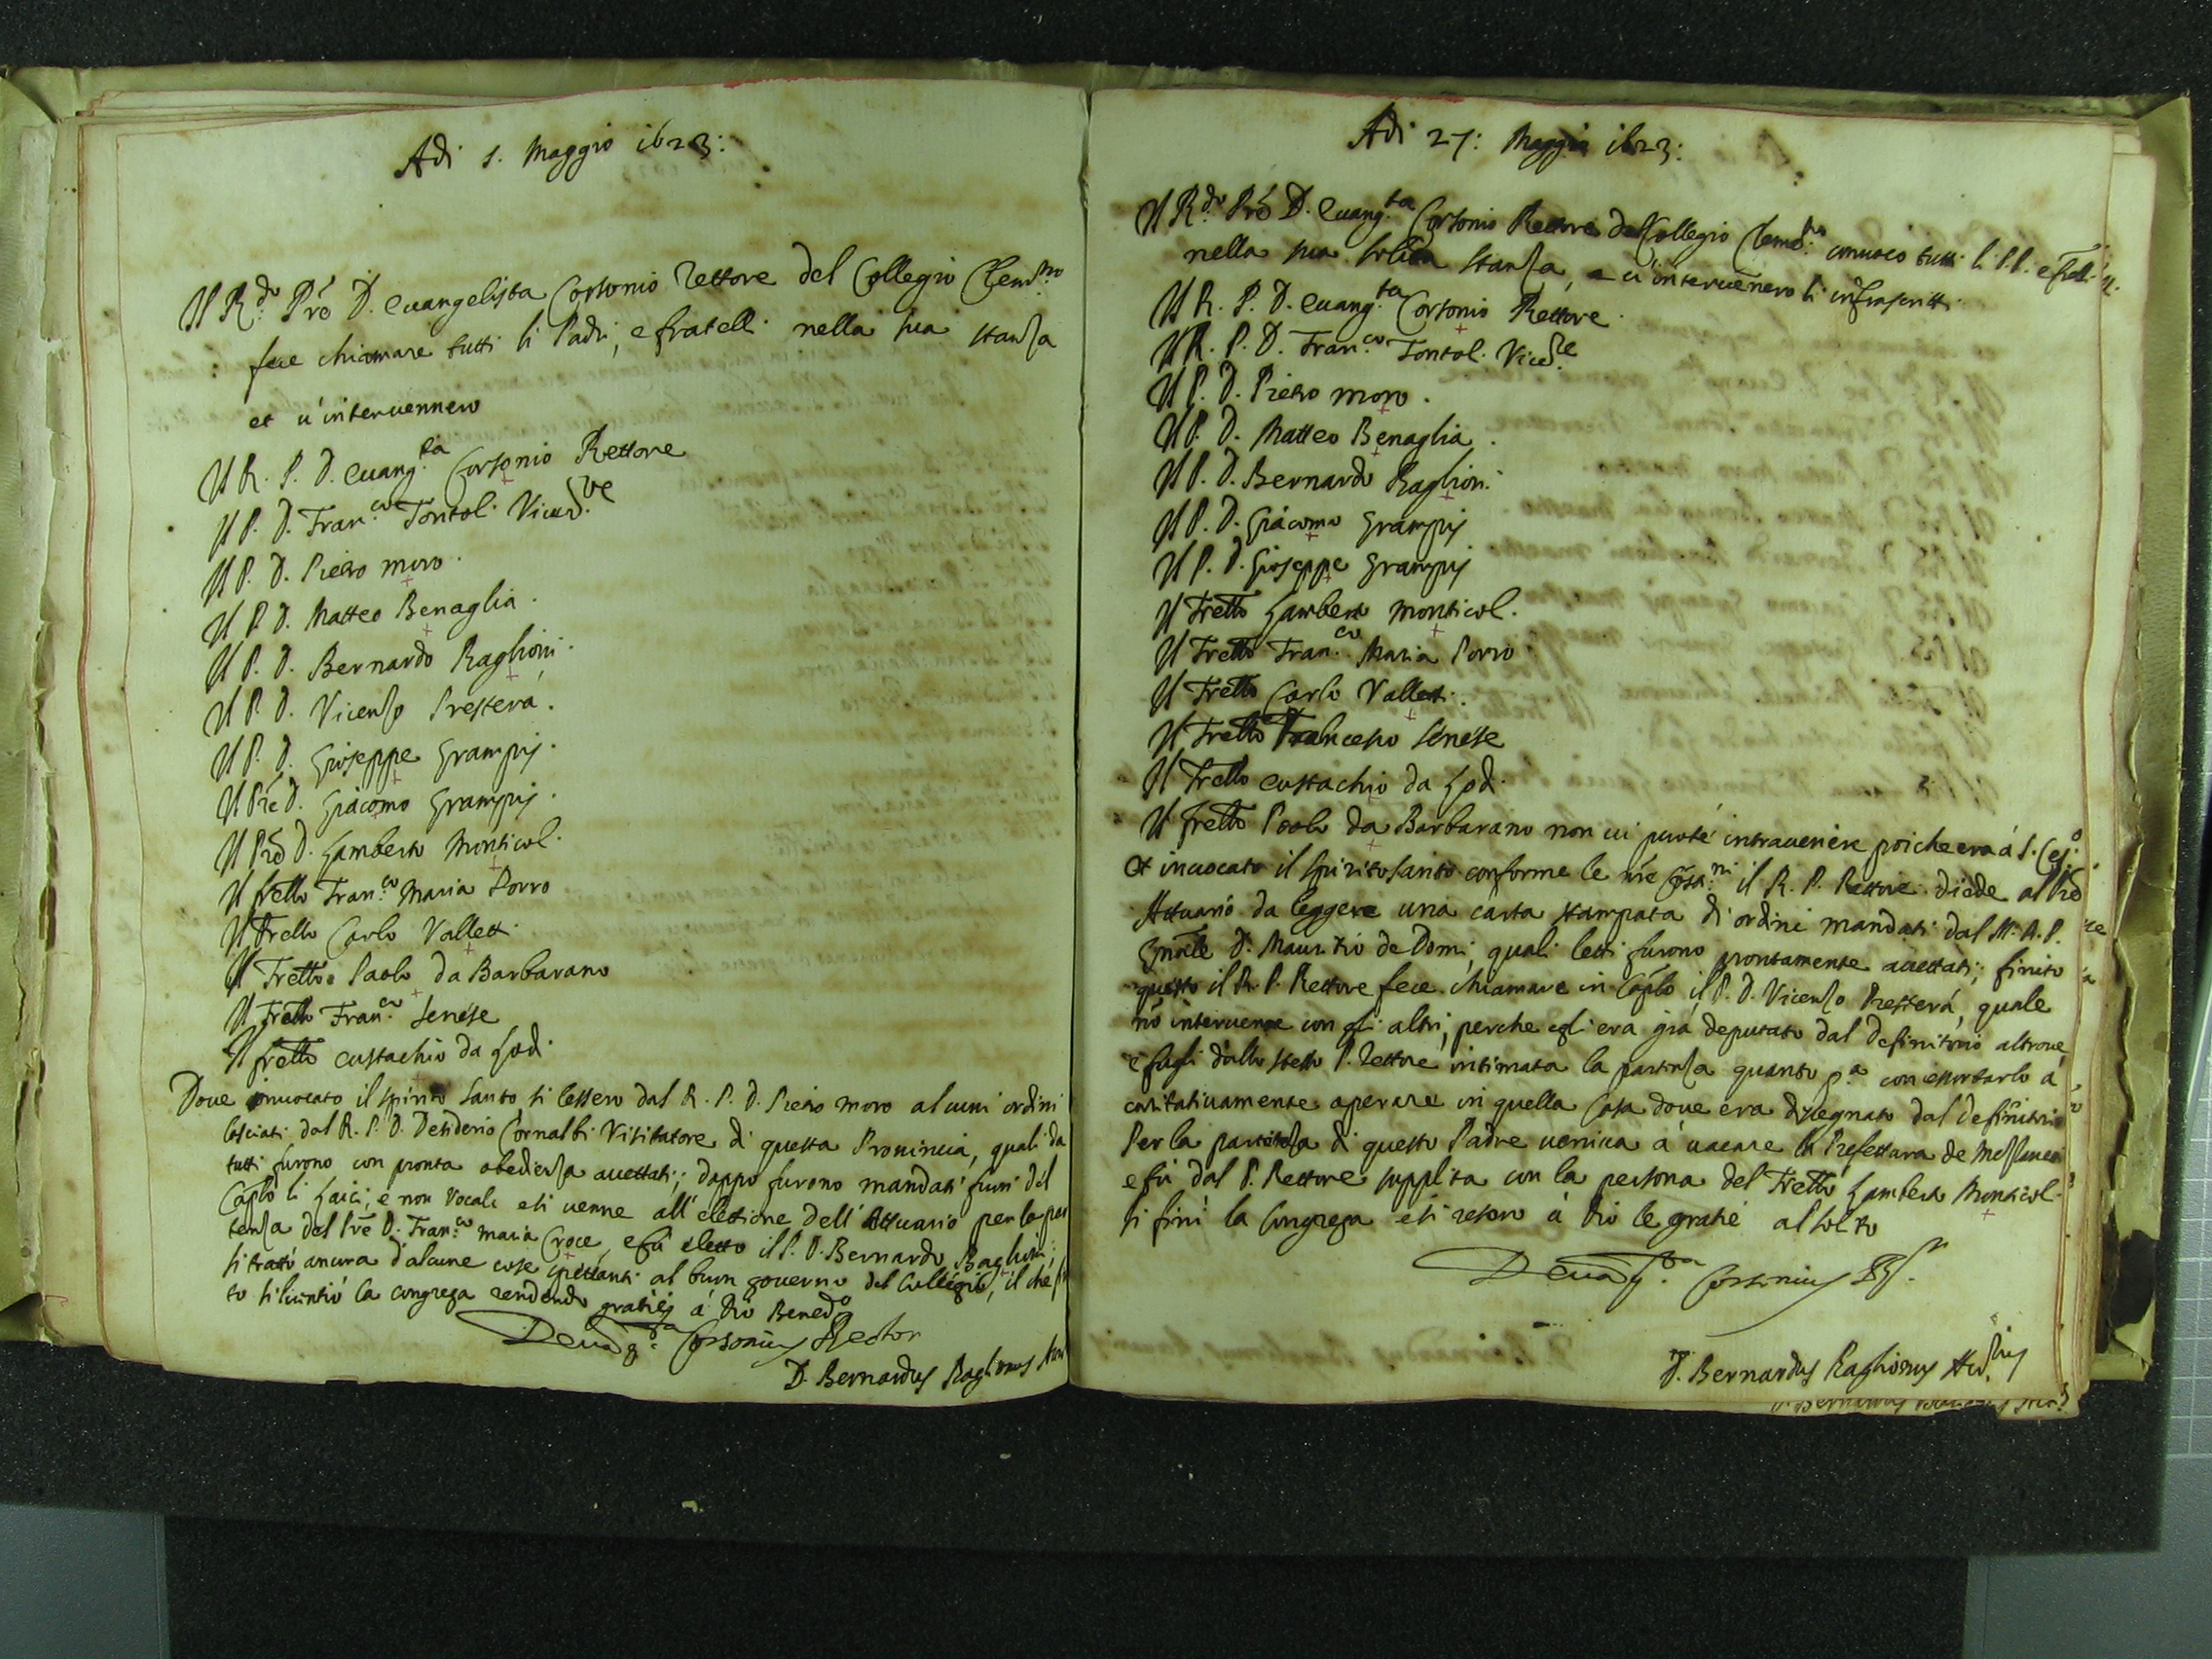 Adi 1. Maggio 1623:
Il R.do Prē D. Euangelista Cortonio rettore del Collegio Clem.no
fece chiamare tutti li Padri, e fratelli nella sua stanza
et u'interuennero
Il R. P. D. Euang.ta Cortonio Rettore
Il P. D. Fran.co Tontol. Vicer.re
Il P. D. Pietro moro.
Il P. D. Matteo Benaglia.
Il P. D. Bernardo Raglioni.
Il P. D. Vicenzo Presterà.
Il P. D. Gioseppe Grampis.
Il Prē D. Giacomo Grampis.
Il Prē D. Lamberto Monticol.
Il frello Fran.co Maria Porro
Il Frello Carlo Vallett.
Il Frello Paolo da Barbarano
Il Frello Fran.co Senése
Il frello Eustachio da Lodi.
Doue inuocato il spirito Santo si lessero dal R. P. D. Pietro Moro alcuni ordini
lasciati dal R. P. D. Desiderio Cornalbi Visitatore di questa Prouincia, quali da
tutti furono con pronta obedienza accettati; doppo furono mandati fuori del
Caplō li Laici, e non Vocali e si uenne all'elettione dell'Attuario per la par
tenza del Prē D. Fran.co maria Croce, e fù eletto il P. D. Bernardo Raglioni;
si trattò ancora d'alcune cose spettanti al buon gouerno del Collegio, il che
to si licentiò la congrega rendendo gratie à Dio Bened.o
D. Euāg.ta Cortonius Rector
D. Bernardus Raglionus
Adi 27: Maggio 1623:
Il R.do Prē D. Euang.ta Cortonio Rettore del Collegio Clem.no conuoco tutti li P.P. e frāli
nella sua solita stanza, e ui interuenero li infrascritti
Il R. P. D. Euang.ta Cortonio Rettore.
Il R. P. D. Fran.co Tontol. Vicer.re
Il P. D. Pietro moro.
Il P. D. Matteo Benaglia.
Il P. D. Bernardo Raglioni.
Il P. D. Giacomo Grampis
Il P. D. Gioseppe Grampis
Il Frello Lamberto Monticol.
Il Frello Fran.co Maria Porro
Il Frello Carlo Vallett.
Il Frello Francesco Senése
Il Frello Eustachio da Lodi.
Il frello Paolo da Barbarano non ui puoté intrauenire poiche era à S. Ces.o
et inuocato il Spirito Santo conforme le nrē Cōst.ni il R. P. Rettore diede al Prē
Attuario da leggere una carta stampata di ordini mandati dal M. R. P.
Gnāle D. Mauritio de Domi, quali letti furono prontamente accettati; finito
questo il R. P. Rettore fece chiamare in Caplō il P. D. Vicenzo Presterà, quale
nō interuenne con gli altri, perche egli era già deputato dal Definitorio altroue,
e fugli dallo stesso P. Rettore intimata la partenza quanto p.a con essortarlo à
caritatiuamente operare in quella Casa doue era dissegnato dal definitorio
Per la partenza di questo Padre ueniua à uacare la Prefettura de Mezzanelli
e fù dal P. Rettore supplita con la persona del Frello Lamberto Monticol.
si finì la Congrega e si resero à Dio le gratie al solito
D. Euāg.ta Cortonius Rr.
D. Bernardus Raglionus Act.rius